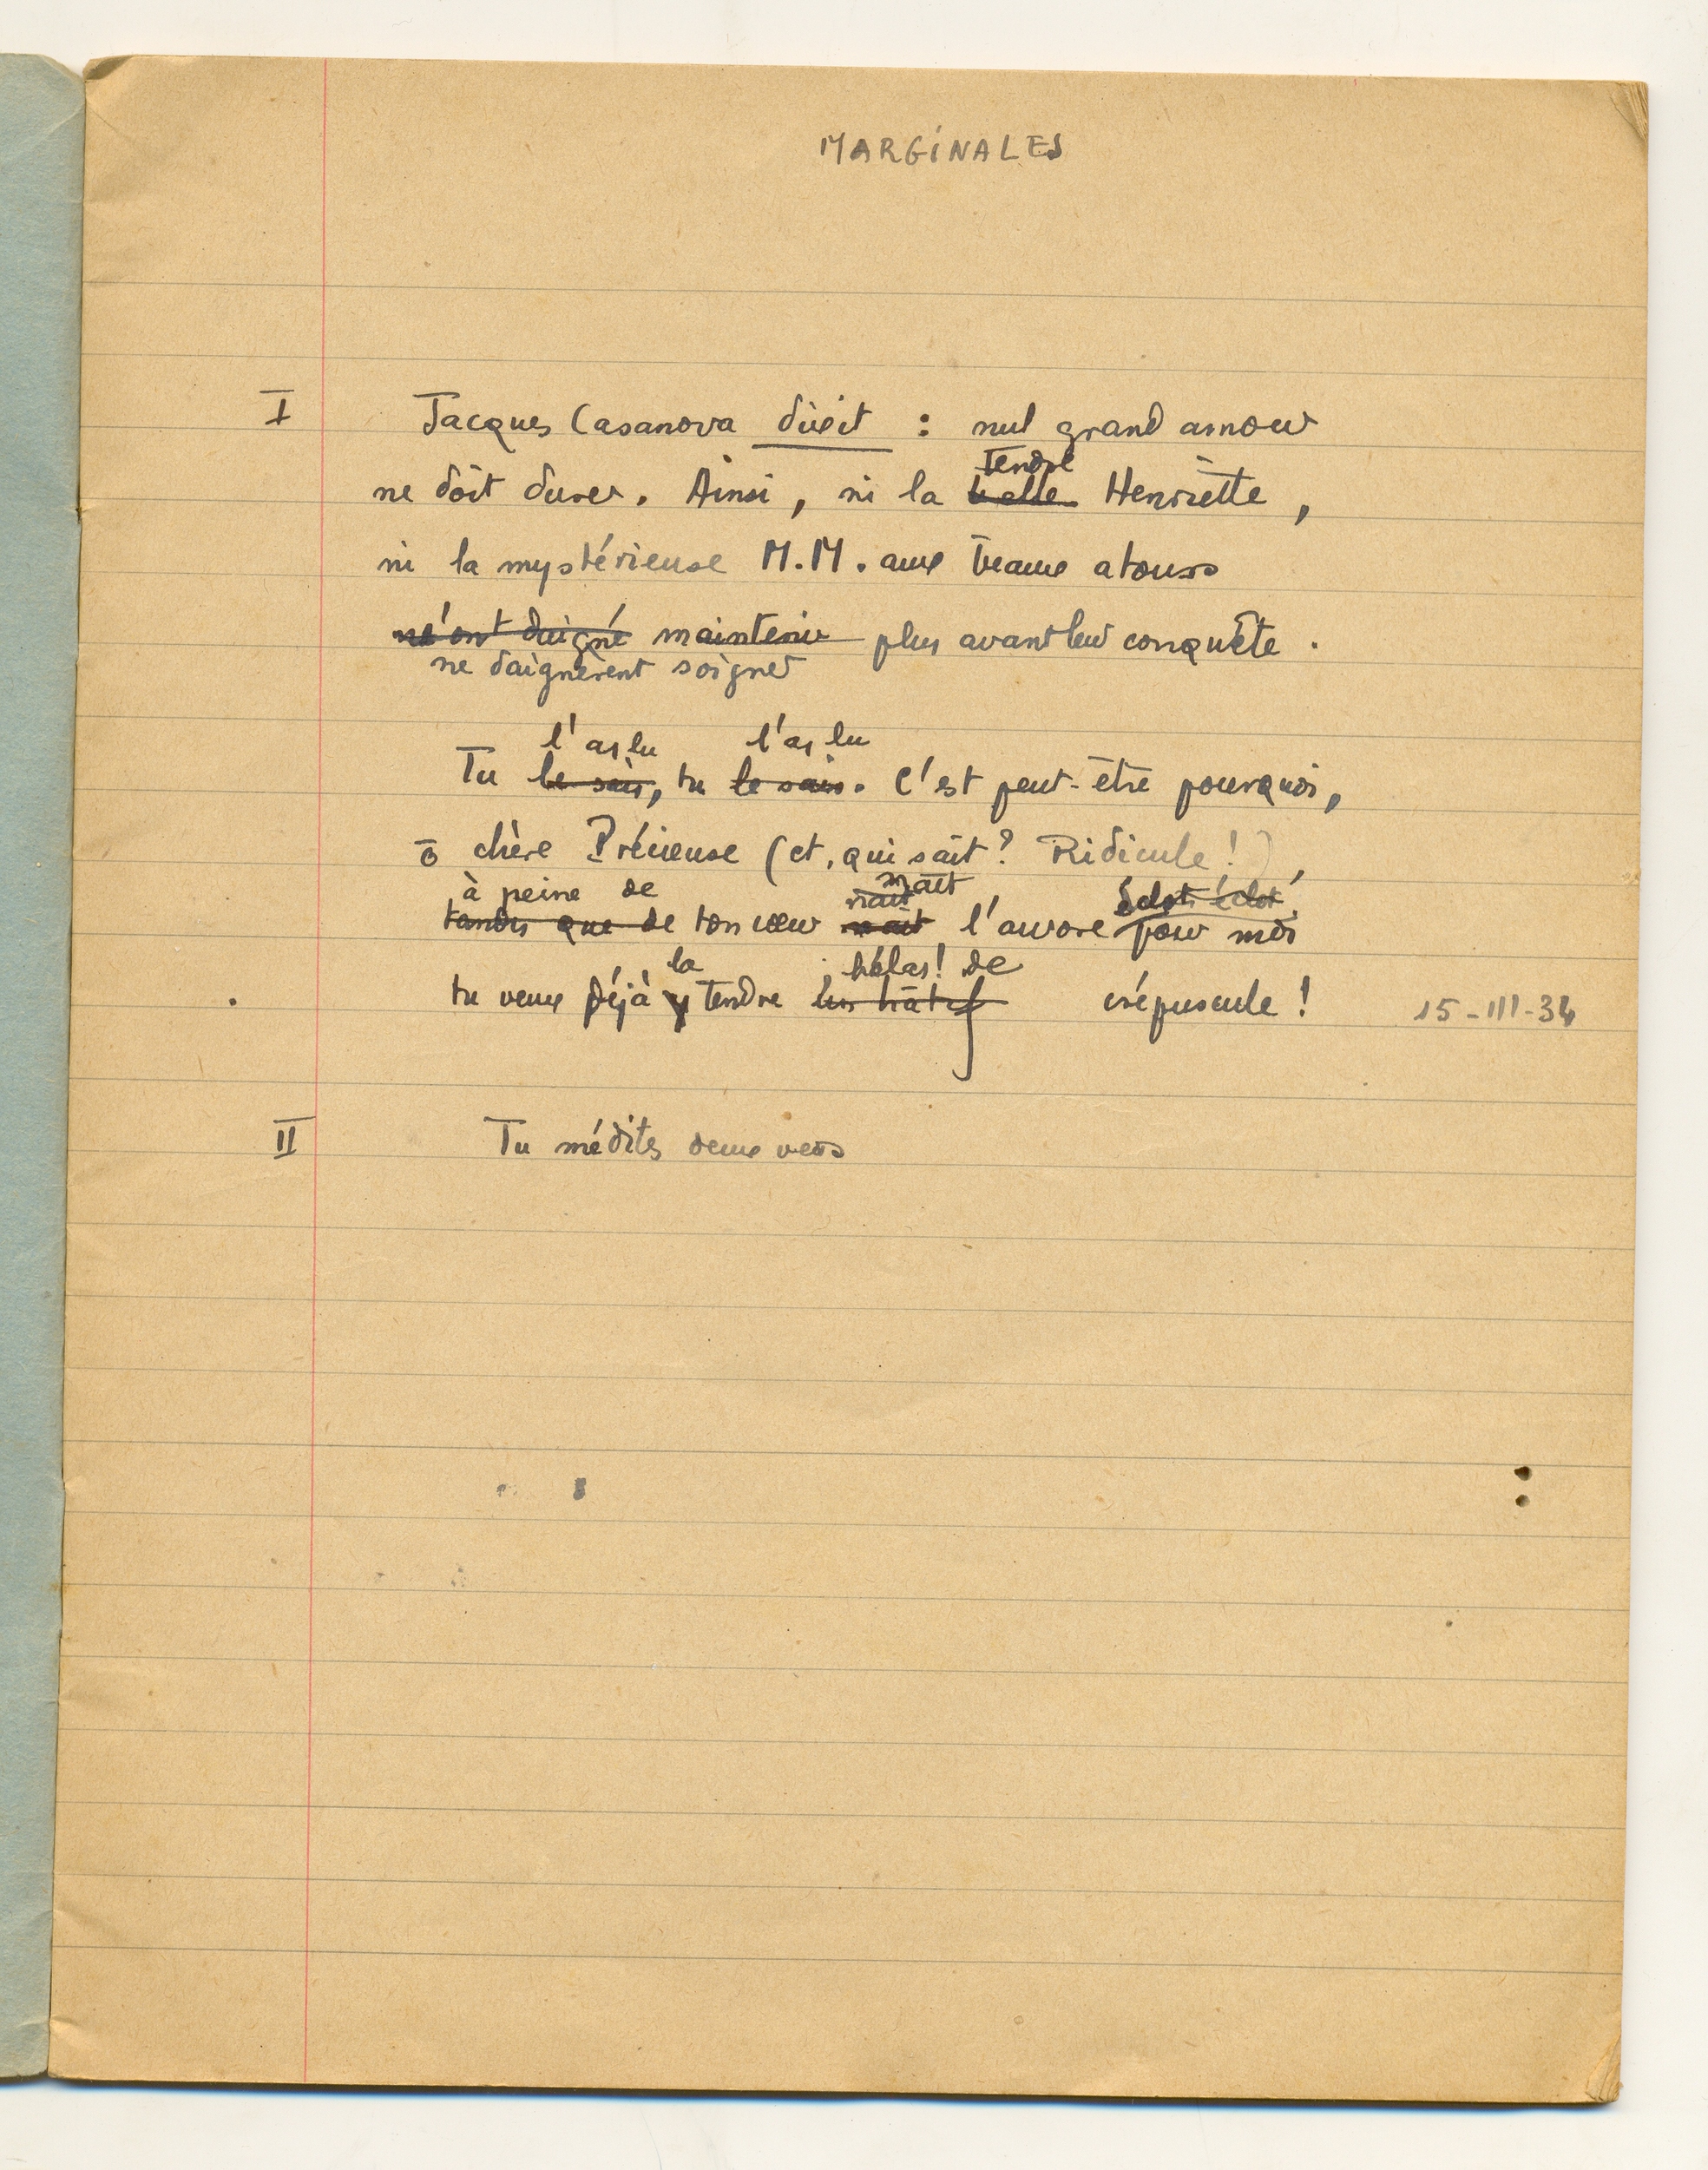 MARGINALES
I
Jacques Casanova dixit : nul grand amour
tendre
ne doit durer. Ainsi, ni la belle Henriette,
ni la mystérieuse M.M. aux beaux atours
n'ont daigné maintenir plus avant leur conquête.
ne daignèrent soigner
l'as lu l'as lu
Tu le sais, tu le sais. C'est peut-être pourquoi,
ô chère Précieuse (et, qui sait? Ridicule!)
à peine de naît naît éclot éclot
tandis que de ton cœur naît l'aurore pour moi
la hélas! de
tu veux déjà y tendre un hâtif crépuscule!
15-III-34
II
Tu médites deux vers